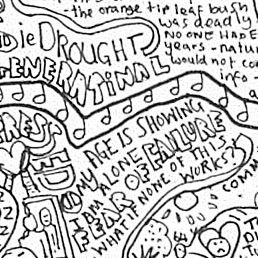 the orange tip leaf bush
was deadly
NO ONE HAD E
years - natur
would not co
info -
le DROUGHT
GENERATIONAL
PRESS
ED
MY AGE IS SHOWING
I AM ALONE
FEAR OF FAILURE
WHAT IF NONE OF THIS
WORKS?
COMM